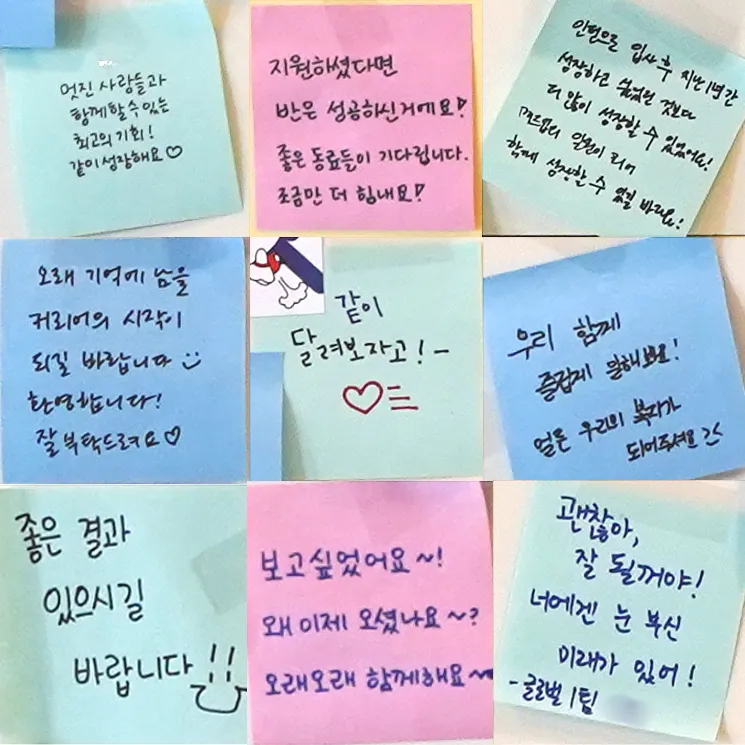 멋진 사람들과
함께할 수 있는
최고의 기회!
같이 성장해요♡
지원하셨다면
반은 성공하신거에요!
좋은 동료들이 기다립니다.
조금만 더 힘내요!
인턴으로 입사 후 지난 1년간
성장하고 싶었던 것보다
더 많이 성장할 수 있었어요!
일원이 되어
함께 성장할 수 있길 바라요!
오래 기억에 남을
커리어의 시작이
되길 바랍니다
환영합니다!
잘 부탁드려요♡
같이
달려보자고!~
우리 함께
즐겁게 일해봐요!
얼른 우리의 복지가
되어주셔요
좋은 결과
있으시길
바랍니다
보고싶었어요~!
왜 이제 오셨나요~?
오래오래 함께해요~
괜찮아,
잘 될꺼야!
너에겐 눈 부신
미래가 있어!
- 글로벌 1팀